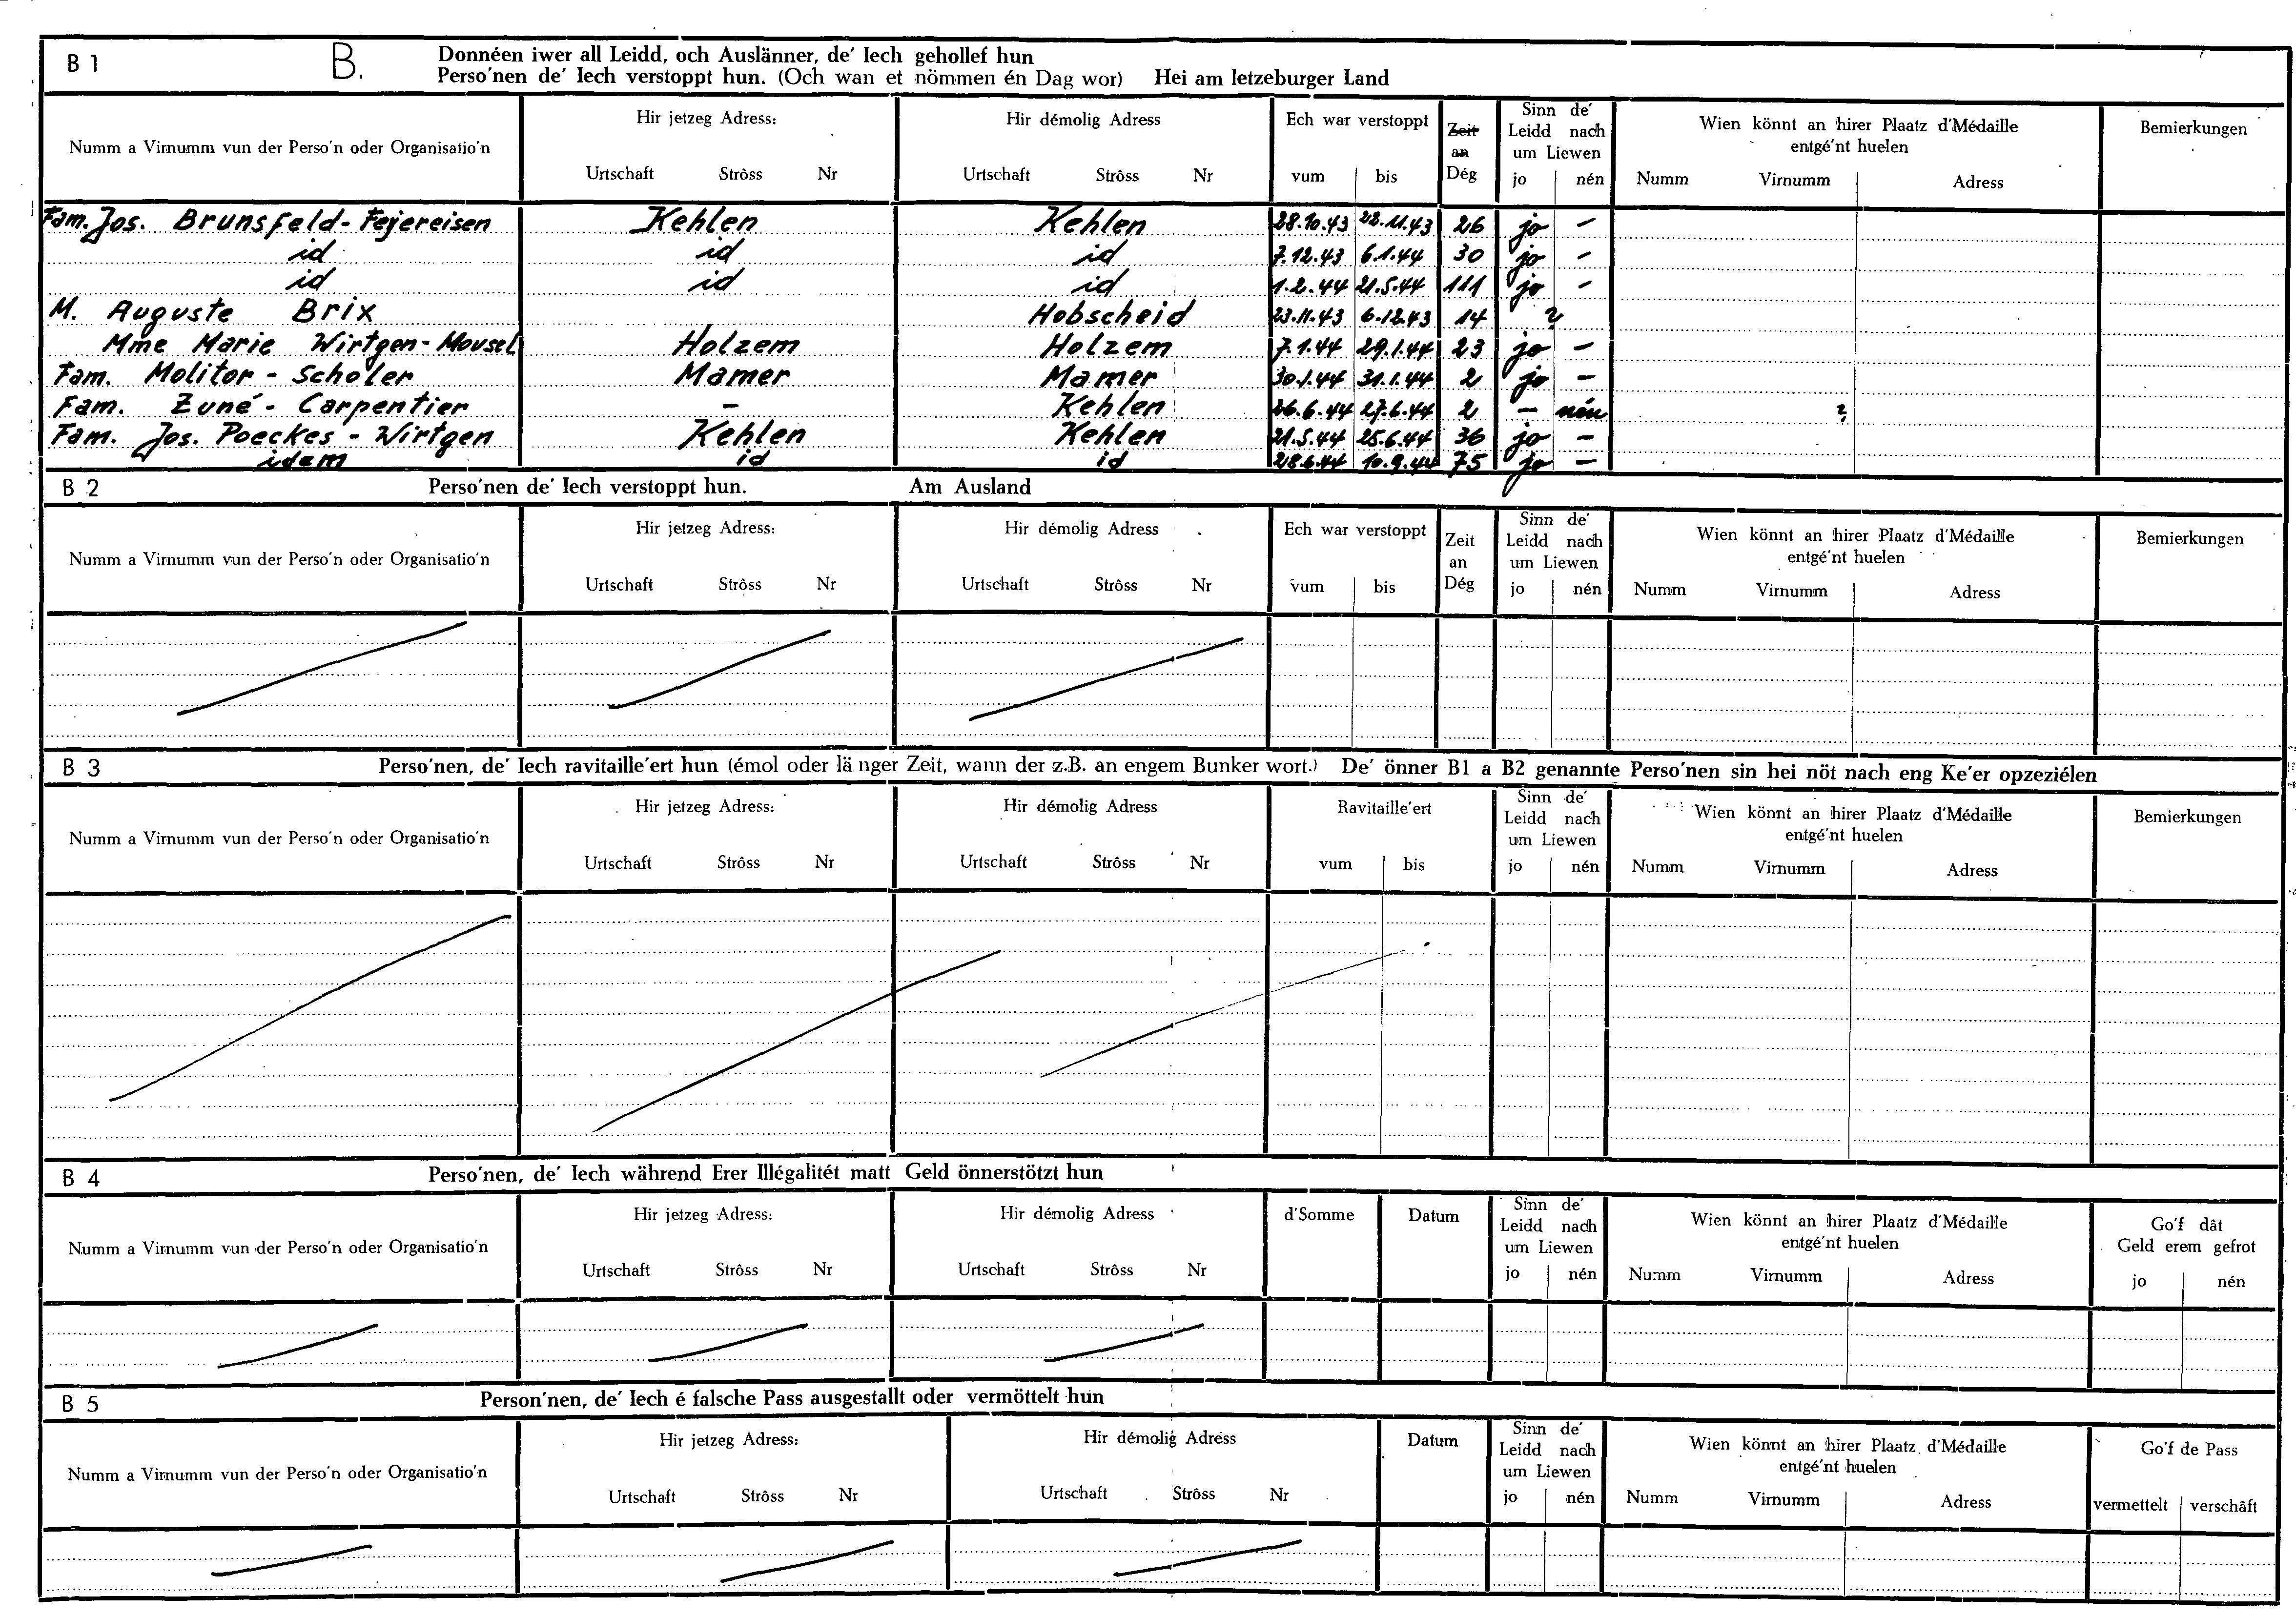 B 1 B. Donnéen iwer all Leidd, och Auslänner, de' Iech gehollef hun
Perso'nen de' Iech verstoppt hun. (Och wan et nömmen én Dag wor) Hei am letzeburger Land
Numm a Virnumm vun der Perso'n oder Organisatio'n
Hir jetzeg Adress:
Urtschaft Strôss Nr
Hir démolig Adress
Urtschaft Strôss Nr
Ech war verstoppt
vum bis
Zeit
an
Dég
Sinn de'
Leidd nach
um Liewen
jo nén
Wien könnt an hirer Plaatz d'Médaille
entgé'nt huelen
Numm Virnumm Adress
Bemierkungen
Fam. Jos. Brunsfeld-Fejereisen Kehlen Kehlen 28.10.43 22.11.43 26 jo -
id id id 7.12.43 6.1.44 30 jo -
id id id 1.2.44 21.5.44 111 jo -
M. Auguste Brix Hobscheid 23.11.43 6.12.43 14 ?
Mme Marie Wirtgen-Mousel Holzem Holzem 7.1.44 29.1.44 23 jo -
Fam. Molitor - Scholer Mamer Mamer 30.1.44 31.1.44 2 jo -
Fam. Zuné - Carpentier - Kehlen 26.6.44 27.6.44 2 - nén ?
Fam. Jos. Poeckes - Wirtgen Kehlen Kehlen 21.5.44 25.6.44 36 jo -
idem id id 28.6.44 10.9.44 75 jo -
B 2 Perso'nen de' Iech verstoppt hun. Am Ausland
Numm a Virnumm vun der Perso'n oder Organisatio'n
Hir jetzeg Adress:
Urtschaft Strôss Nr
Hir démolig Adress
Urtschaft Strôss Nr
Ech war verstoppt
vum bis
Zeit
an
Dég
Sinn de'
Leidd nach
um Liewen
jo nén
Wien könnt an hirer Plaatz d'Médaille
entgé'nt huelen
Numm Virnumm Adress
Bemierkungen
B 3 Perso'nen, de' Iech ravitaille'ert hun (émol oder länger Zeit, wann der z.B. an engem Bunker wort.) De' önner B1 a B2 genannte Perso'nen sin hei nöt nach eng Ke'er opzeziélen
Numm a Virnumm vun der Perso'n oder Organisatio'n
Hir jetzeg Adress:
Urtschaft Strôss Nr
Hir démolig Adress
Urtschaft Strôss Nr
Ravitaille'ert
vum bis
Sinn de'
Leidd nach
um Liewen
jo nén
Wien könnt an hirer Plaatz d'Médaille
entgé'nt huelen
Numm Virnumm Adress
Bemierkungen
B 4 Perso'nen, de' Iech während Erer Illégalitét matt Geld önnerstötzt hun
Numm a Virnumm vun der Perso'n oder Organisatio'n
Hir jetzeg Adress:
Urtschaft Strôss Nr
Hir démolig Adress
Urtschaft Strôss Nr
d'Somme
Datum
Sinn de'
Leidd nach
um Liewen
jo nén
Wien könnt an hirer Plaatz d'Médaille
entgé'nt huelen
Numm Virnumm Adress
Go'f dât
Geld erem gefrot
jo nén
B 5 Person'nen, de' Iech é falsche Pass ausgestallt oder vermöttelt hun
Numm a Virnumm vun der Perso'n oder Organisatio'n
Hir jetzeg Adress:
Urtschaft Strôss Nr
Hir démolig Adress
Urtschaft Strôss Nr
Datum
Sinn de'
Leidd nach
um Liewen
jo nén
Wien könnt an hirer Plaatz d'Médaille
entgé'nt huelen
Numm Virnumm Adress
Go'f de Pass
vermettelt verschâft